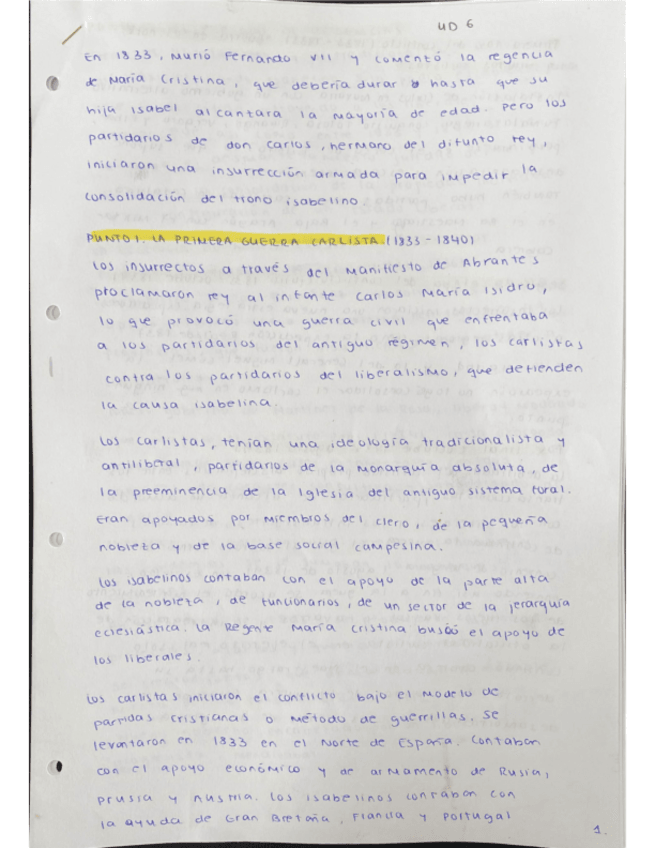 UD 6
En 1833, murió Fernando VII y comentó la regencia
de María Cristina, que debería durar hasta que su
hija Isabel alcantara la mayoría de edad. Pero los
partidarios de don Carlos, hermano del difunto rey,
iniciaron una insurrección armada para impedir la
consolidación del trono isabelino
PUNTO 1. LA PRIMERA GUERRA CARLISTA (1833-1840)
Los insurrectos a través del Manifiesto de Abrantes
proclamaron rey al infante Carlos María Isidro,
lo que provocó una guerra civil que enfrentaba
a los partidarios del antiguo régimen, los carlistas
contra los partidarios del liberalismo, que defienden
la causa isabelina.
Los carlistas, tenían una ideología tradicionalista y
antiliberal, partidarios de la monarquía absoluta, de
la preeminencia de la Iglesia del antiguo sistema foral.
Eran apoyados por miembros del clero, de la pequeña
nobleza y de la base social campesina.
Los isabelinos contaban con el apoyo de la parte alta
de la nobleza, de funcionarios, de un sector de la jerarquía
eclesiástica. La Regente María Cristina buscó el apoyo de
los liberales.
Los carlistas iniciaron el conflicto bajo el modelo de
partidas cristianas o método de guerrillas. Se
levantaron en 1833 en el Norte de España. Contaban
con el apoyo económico y de armamento de Rusia,
Prusia y Austria. Los isabelinos contaban con
la ayuda de Gran Bretaña, Francia y Portugal
1.